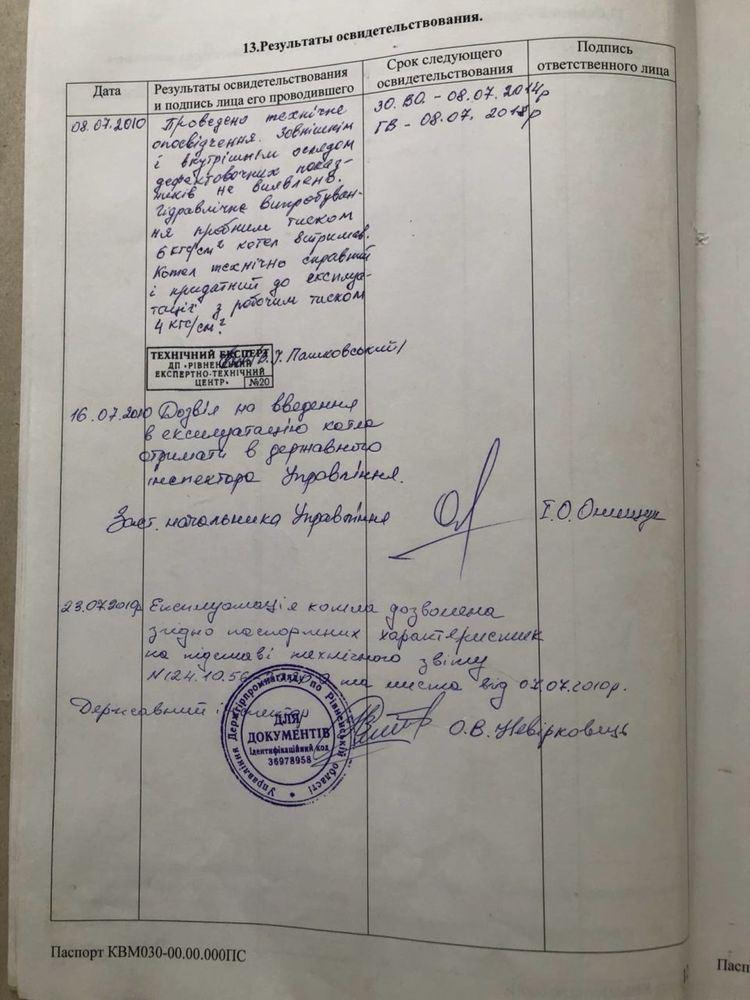 13.Результаты освидетельствования.
Дата
Результаты освидетельствования
и подпись лица его проводившего
Срок следующего
освидетельствования
Подпись
ответственного лица
08.07.2010
Проведено технічне
опосвідчення. Зовнішнім
і внутрішнім оглядом
дефектовочних показ-
ників не виявлено.
Гідравлічне випробуван-
ня пробним тиском
6 кгс/см² котел витримав.
Котел технічно справний
і придатний до експлуа-
тації з робочим тиском
4 кгс/см².
ЗО. ВО. - 08.07.2014р
ГВ - 08.07. 2018р
ТЕХНІЧНИЙ ЕКСПЕРТ
ДП «РІВНЕНСЬКИЙ
ЕКСПЕРТНО-ТЕХНІЧНИЙ
ЦЕНТР» №20
Пашковський/
16.07.2010 Дозвіл на введення
в експлуатацію котла
отримати в державного
інспектора Управління.
Заст. начальника Управління
І.О. Онищук
23.07.2010р Експлуатація котла дозволена
згідно паспортних характеристик
на підставі технічного звіту
№124.10.56 та листа від 07.07.2010р.
Державний
О.В. Невірковець
Управління Держгірпромнагляду по Рівненській області
ДЛЯ
ДОКУМЕНТІВ
Ідентифікаційний код
36978958
Паспорт КВМ030-00.00.000ПС
Пасп